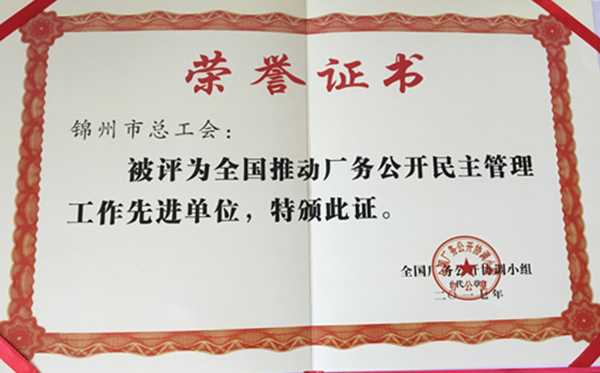 荣誉证书
锦州市总工会：
被评为全国推动厂务公开民主管理
工作先进单位，特颁此证。
全国厂务公开协调小组
（代公章）
二〇一七年